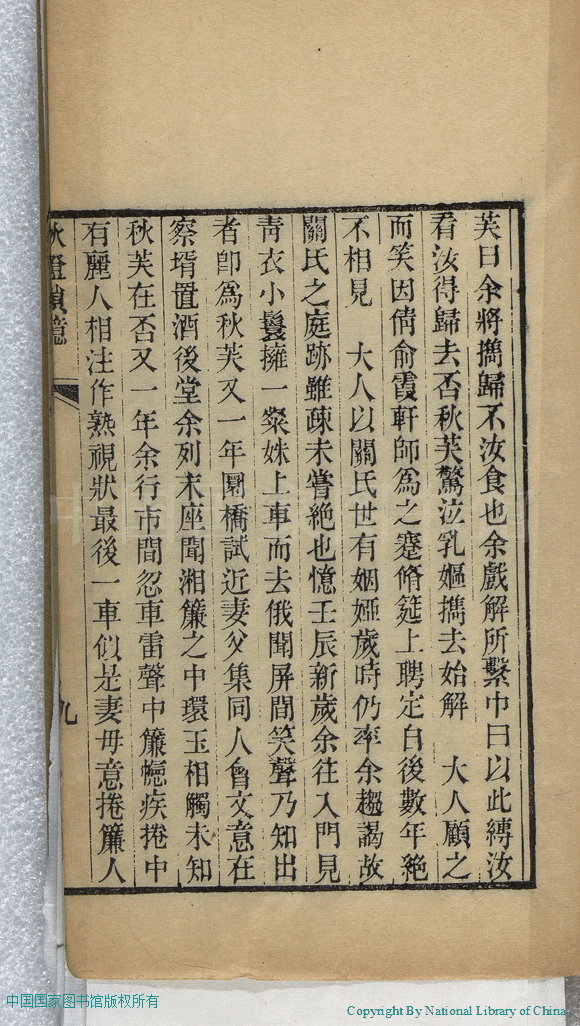 芙曰余將攜歸不汝食也余戲解所繫巾曰以此縛汝
看汝得歸去否秋芙驚泣乳嫗攜去始解　大人顧之
而笑因倩俞霞軒師為之蹇脩筵上聘定自後數年絕
不相見　大人以關氏世有姻婭歲時仍率余趨謁故
關氏之庭跡雖疎未嘗絕也憶壬辰新歲余往入門見
青衣小鬟擁一粲姝上車而去俄聞屏間笑聲乃知出
者卽為秋芙又一年圜橋試近妻父集同人會文意在
察壻置酒後堂余列末座聞湘簾之中環玉相觸未知
秋芙在否又一年余行市間忽車雷聲中簾幰疾捲中
有麗人相注作熟視狀最後一車似是妻母意捲簾人
秋鐙瑣憶
九
中国国家图书馆版权所有
Copyright By National Library of China